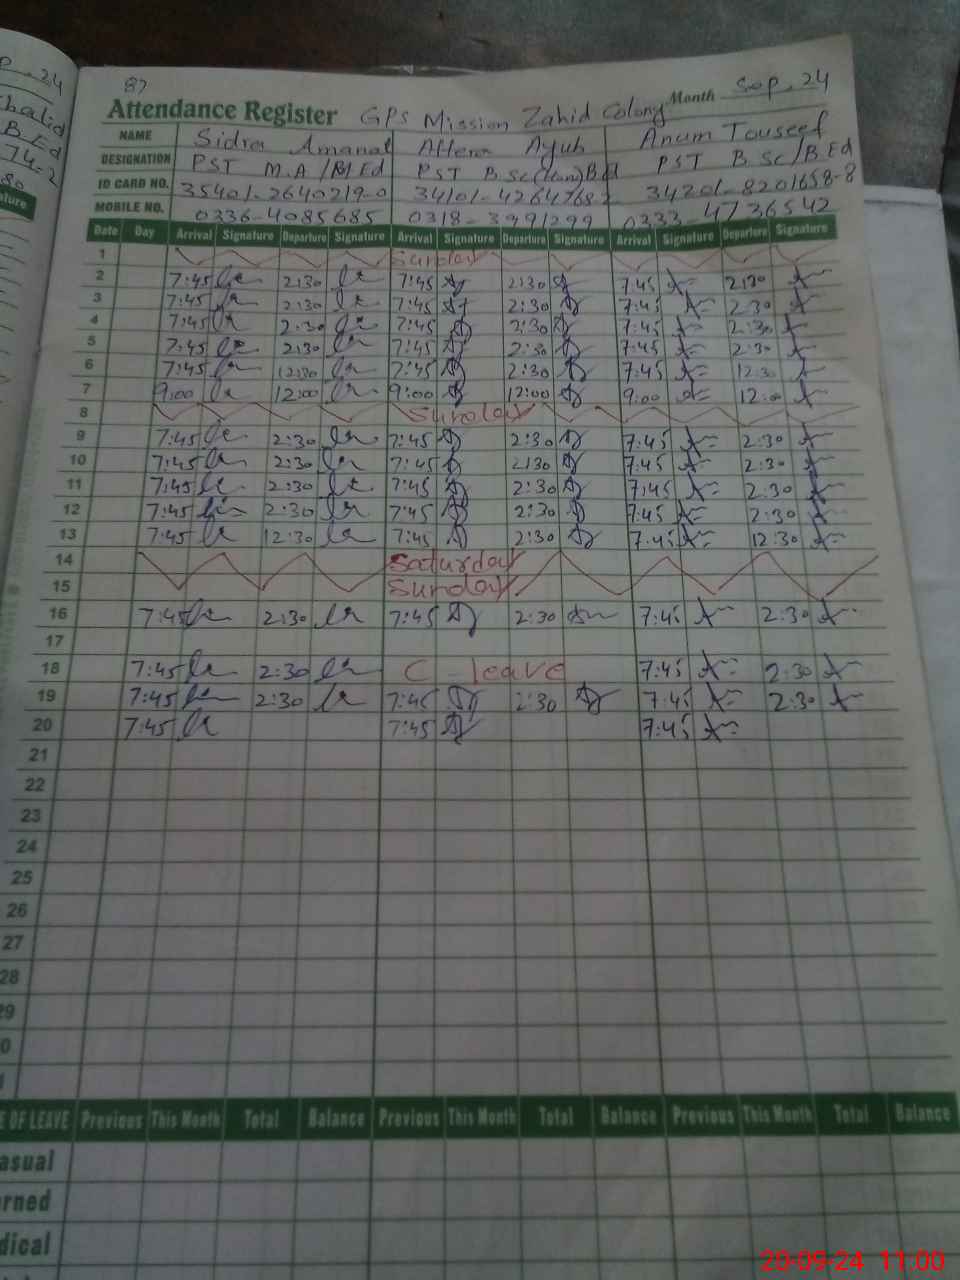 P. 24
Khalid
B Ed
74-2
80
ature
87
Month Sep. 24
Attendance Register GPS Mission Zahid Colony
NAME Sidra Amanat Ayub Anum Touseef
DESIGNATION PST M.A / B.Ed PST B.Sc(Hon)B.Ed PST B.Sc/B.Ed
ID CARD NO. 35401-2640219-0 34201-8201658-8
MOBILE NO. 0336-4085685 0318-3991299 0333-4736542
Date Day Arrival Signature Departure Signature Arrival Signature Departure Signature Arrival Signature Departure Signature
1 Sunday
2 7:45 2:30 7:45 2:30 7:45 2:30
3 7:45 2:30 7:45 2:30 7:45 2:30
4 7:45 2:30 7:45 2:30 7:45 2:30
5 7:45 2:30 7:45 2:30 7:45 2:30
6 7:45 12:30 7:45 2:30 7:45 12:30
7 9:00 12:00 9:00 12:00 9:00 12:00
8 Sunday
9 7:45 2:30 7:45 2:30 7:45 2:30
10 7:45 2:30 7:45 2:30 7:45 2:30
11 7:45 2:30 7:45 2:30 7:45 2:30
12 7:45 2:30 7:45 2:30 7:45 2:30
13 7:45 12:30 7:45 2:30 7:45 12:30
14 Saturday
15 Sunday
16 7:45 2:30 7:45 2:30 7:45 2:30
17
18 7:45 2:30 C-leave 7:45 2:30
19 7:45 2:30 7:45 2:30 7:45 2:30
20 7:45 7:45 7:45
21
22
23
24
25
26
27
28
29
0
E OF LEAVE Previous This Month Total Balance Previous This Month Total Balance Previous This Month Total Balance
asual
rned
dical
20-09-24 11:00